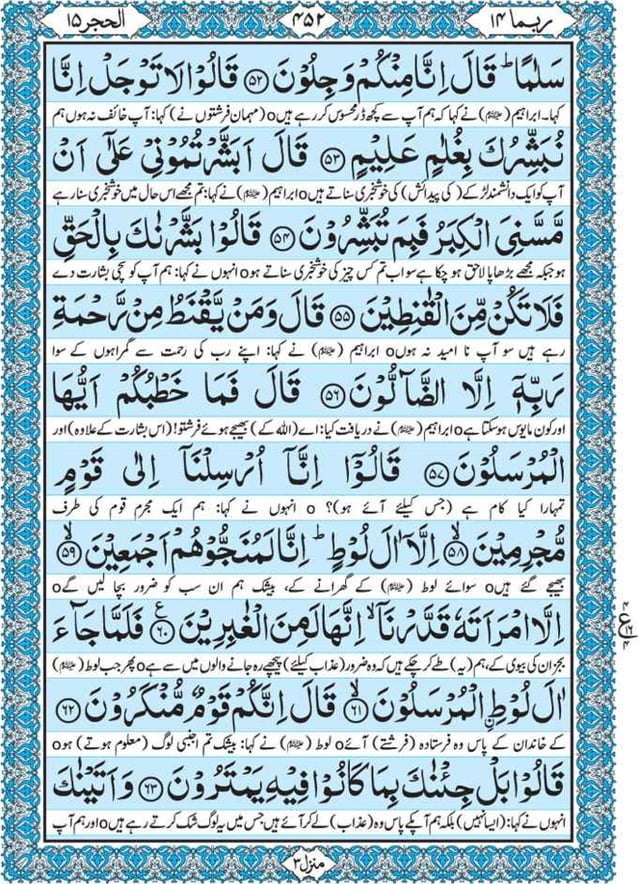 ربما ١٤
٤٥٢
الحجر ١٥
سَلٰمًا ؕ قَالَ اِنَّا مِنْكُمْ وَجِلُوْنَ ﴿۵۲﴾ قَالُوْا لَا تَوْجَلْ اِنَّا
کہا۔ ابراہیم (ﷺ) نے کہا کہ ہم آپ سے کچھ ڈر محسوس کر رہے ہیں o (مہمان فرشتوں نے) کہا: آپ خائف نہ ہوں ہم
نُبَشِّرُكَ بِغُلٰمٍ عَلِيْمٍ ﴿۵۳﴾ قَالَ اَبَشَّرْتُمُوْنِيْ عَلٰٓى اَنْ
آپ کو ایک دانشمند لڑکے (کی پیدائش) کی خوشخبری سناتے ہیں o ابراہیم (ﷺ) نے کہا: تم مجھے اس حال میں خوشخبری سنا رہے
مَّسَّنِيَ الْكِبَرُ فَبِمَ تُبَشِّرُوْنَ ﴿۵۴﴾ قَالُوْا بَشَّرْنٰكَ بِالْحَقِّ
ہو جبکہ مجھے بڑھاپا لاحق ہو چکا ہے سو اب تم کس چیز کی خوشخبری سناتے ہو o انہوں نے کہا: ہم آپ کو سچی بشارت دے
فَلَا تَكُنْ مِّنَ الْقٰنِطِيْنَ ﴿۵۵﴾ قَالَ وَمَنْ يَّقْنَطُ مِنْ رَّحْمَةِ
رہے ہیں سو آپ نا امید نہ ہوں o ابراہیم (ﷺ) نے کہا: اپنے رب کی رحمت سے گمراہوں کے سوا
رَبِّهٖٓ اِلَّا الضَّآلُّوْنَ ﴿۵۶﴾ قَالَ فَمَا خَطْبُكُمْ اَيُّهَا
اور کون مایوس ہو سکتا ہے o ابراہیم (ﷺ) نے دریافت کیا: اے (اللہ کے) بھیجے ہوئے فرشتو! (اس بشارت کے علاوہ) اور
الْمُرْسَلُوْنَ ﴿۵۷﴾ قَالُوْٓا اِنَّآ اُرْسِلْنَآ اِلٰى قَوْمٍ
تمہارا کیا کام ہے (جس کیلئے آئے ہو)؟ o انہوں نے کہا: ہم ایک مجرم قوم کی طرف
مُّجْرِمِيْنَ ﴿۵۸﴾ۙ اِلَّآ اٰلَ لُوْطٍ ؕ اِنَّا لَمُنَجُّوْهُمْ اَجْمَعِيْنَ ﴿۵۹﴾ۙ
بھیجے گئے ہیں o سوائے لوط (ﷺ) کے گھرانے کے، بیشک ہم ان سب کو ضرور بچا لیں گے o
اِلَّا امْرَاَتَهٗ قَدَّرْنَآ ۙ اِنَّهَا لَمِنَ الْغٰبِرِيْنَ ﴿۶۰﴾ع فَلَمَّا جَآءَ
بجز ان کی بیوی کے، ہم (یہ) طے کر چکے ہیں کہ وہ ضرور (عذاب کیلئے) پیچھے رہ جانے والوں میں سے ہے o پھر جب لوط (ﷺ)
اٰلَ لُوْطِ ۨالْمُرْسَلُوْنَ ﴿۶۱﴾ۙ قَالَ اِنَّكُمْ قَوْمٌ مُّنْكَرُوْنَ ﴿۶۲﴾
کے خاندان کے پاس وہ فرستادہ (فرشتے) آئے o لوط (ﷺ) نے کہا: بیشک تم اجنبی لوگ (معلوم ہوتے) ہو o
قَالُوْا بَلْ جِئْنٰكَ بِمَا كَانُوْا فِيْهِ يَمْتَرُوْنَ ﴿۶۳﴾ وَاَتَيْنٰكَ
انہوں نے کہا: (ایسا نہیں) بلکہ ہم آپکے پاس وہ (عذاب) لے کر آئے ہیں جس میں یہ لوگ شک کرتے رہے ہیں o اور ہم آپ
منزل ٣